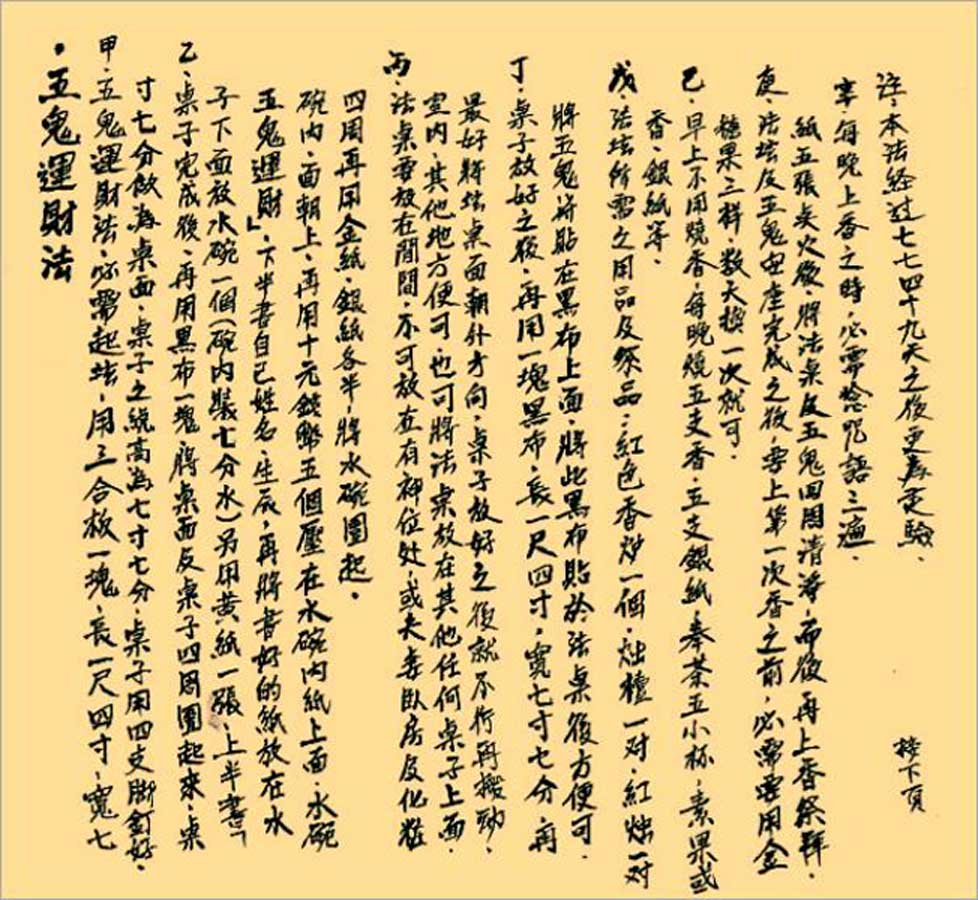 ・五鬼運財法
甲・五鬼運財法・必需起坛・用三合板一塊・長一尺四寸・寬七
寸七分做為桌面・桌子之總高為七寸七分・桌子用四支腳釘好・
乙・桌子完成後・再用黑布一塊・將桌面及桌子四周圍起來・桌
子下面放水碗一個(碗内裝七分水)另用黄紙一張・上半書「
五鬼運財」・下半書自己姓名・生辰・再將書好的紙放在水
碗内・面朝上・再用十元錢幣五個壓在水碗内紙上面・水碗
四周再用金紙・銀紙各半・將水碗圍起・
丙・法桌要放在閒間・不可放在有神位处・或夫妻臥房及化粧
室内・其他地方便可・也可將法桌放在其他任何桌子上面・
最好將坛桌面朝外方向・桌子放好之後就不行再搬動・
丁・桌子放好之後・再用一塊黑布・長一尺四寸・寬七寸七分・再
將五鬼符貼在黑布上面・將此黑布貼於法桌後方便可・
戊・法坛所需之用品及祭品:紅色香炉一個・烛檯一对・紅烛一对
香・銀紙等・
己・早上不用燒香・每晚燒五支香・五支銀紙・奉茶五小杯・素果或
糖果三样・数天換一次就可・
庚・法坛及五鬼安座完成之後・要上第一次香之前・必需要用金
紙五張点火後・將法桌及五鬼四周清淨・而後再上香祭拜・
辛・每晚上香之時・必需唸咒語三遍・
註・本法経过七七四十九天之後更為灵驗・
接下頁